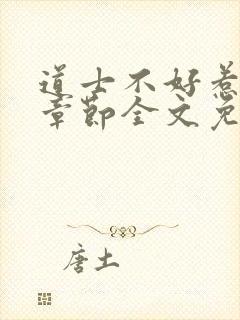 道士不好惹
章節全文免
唐土